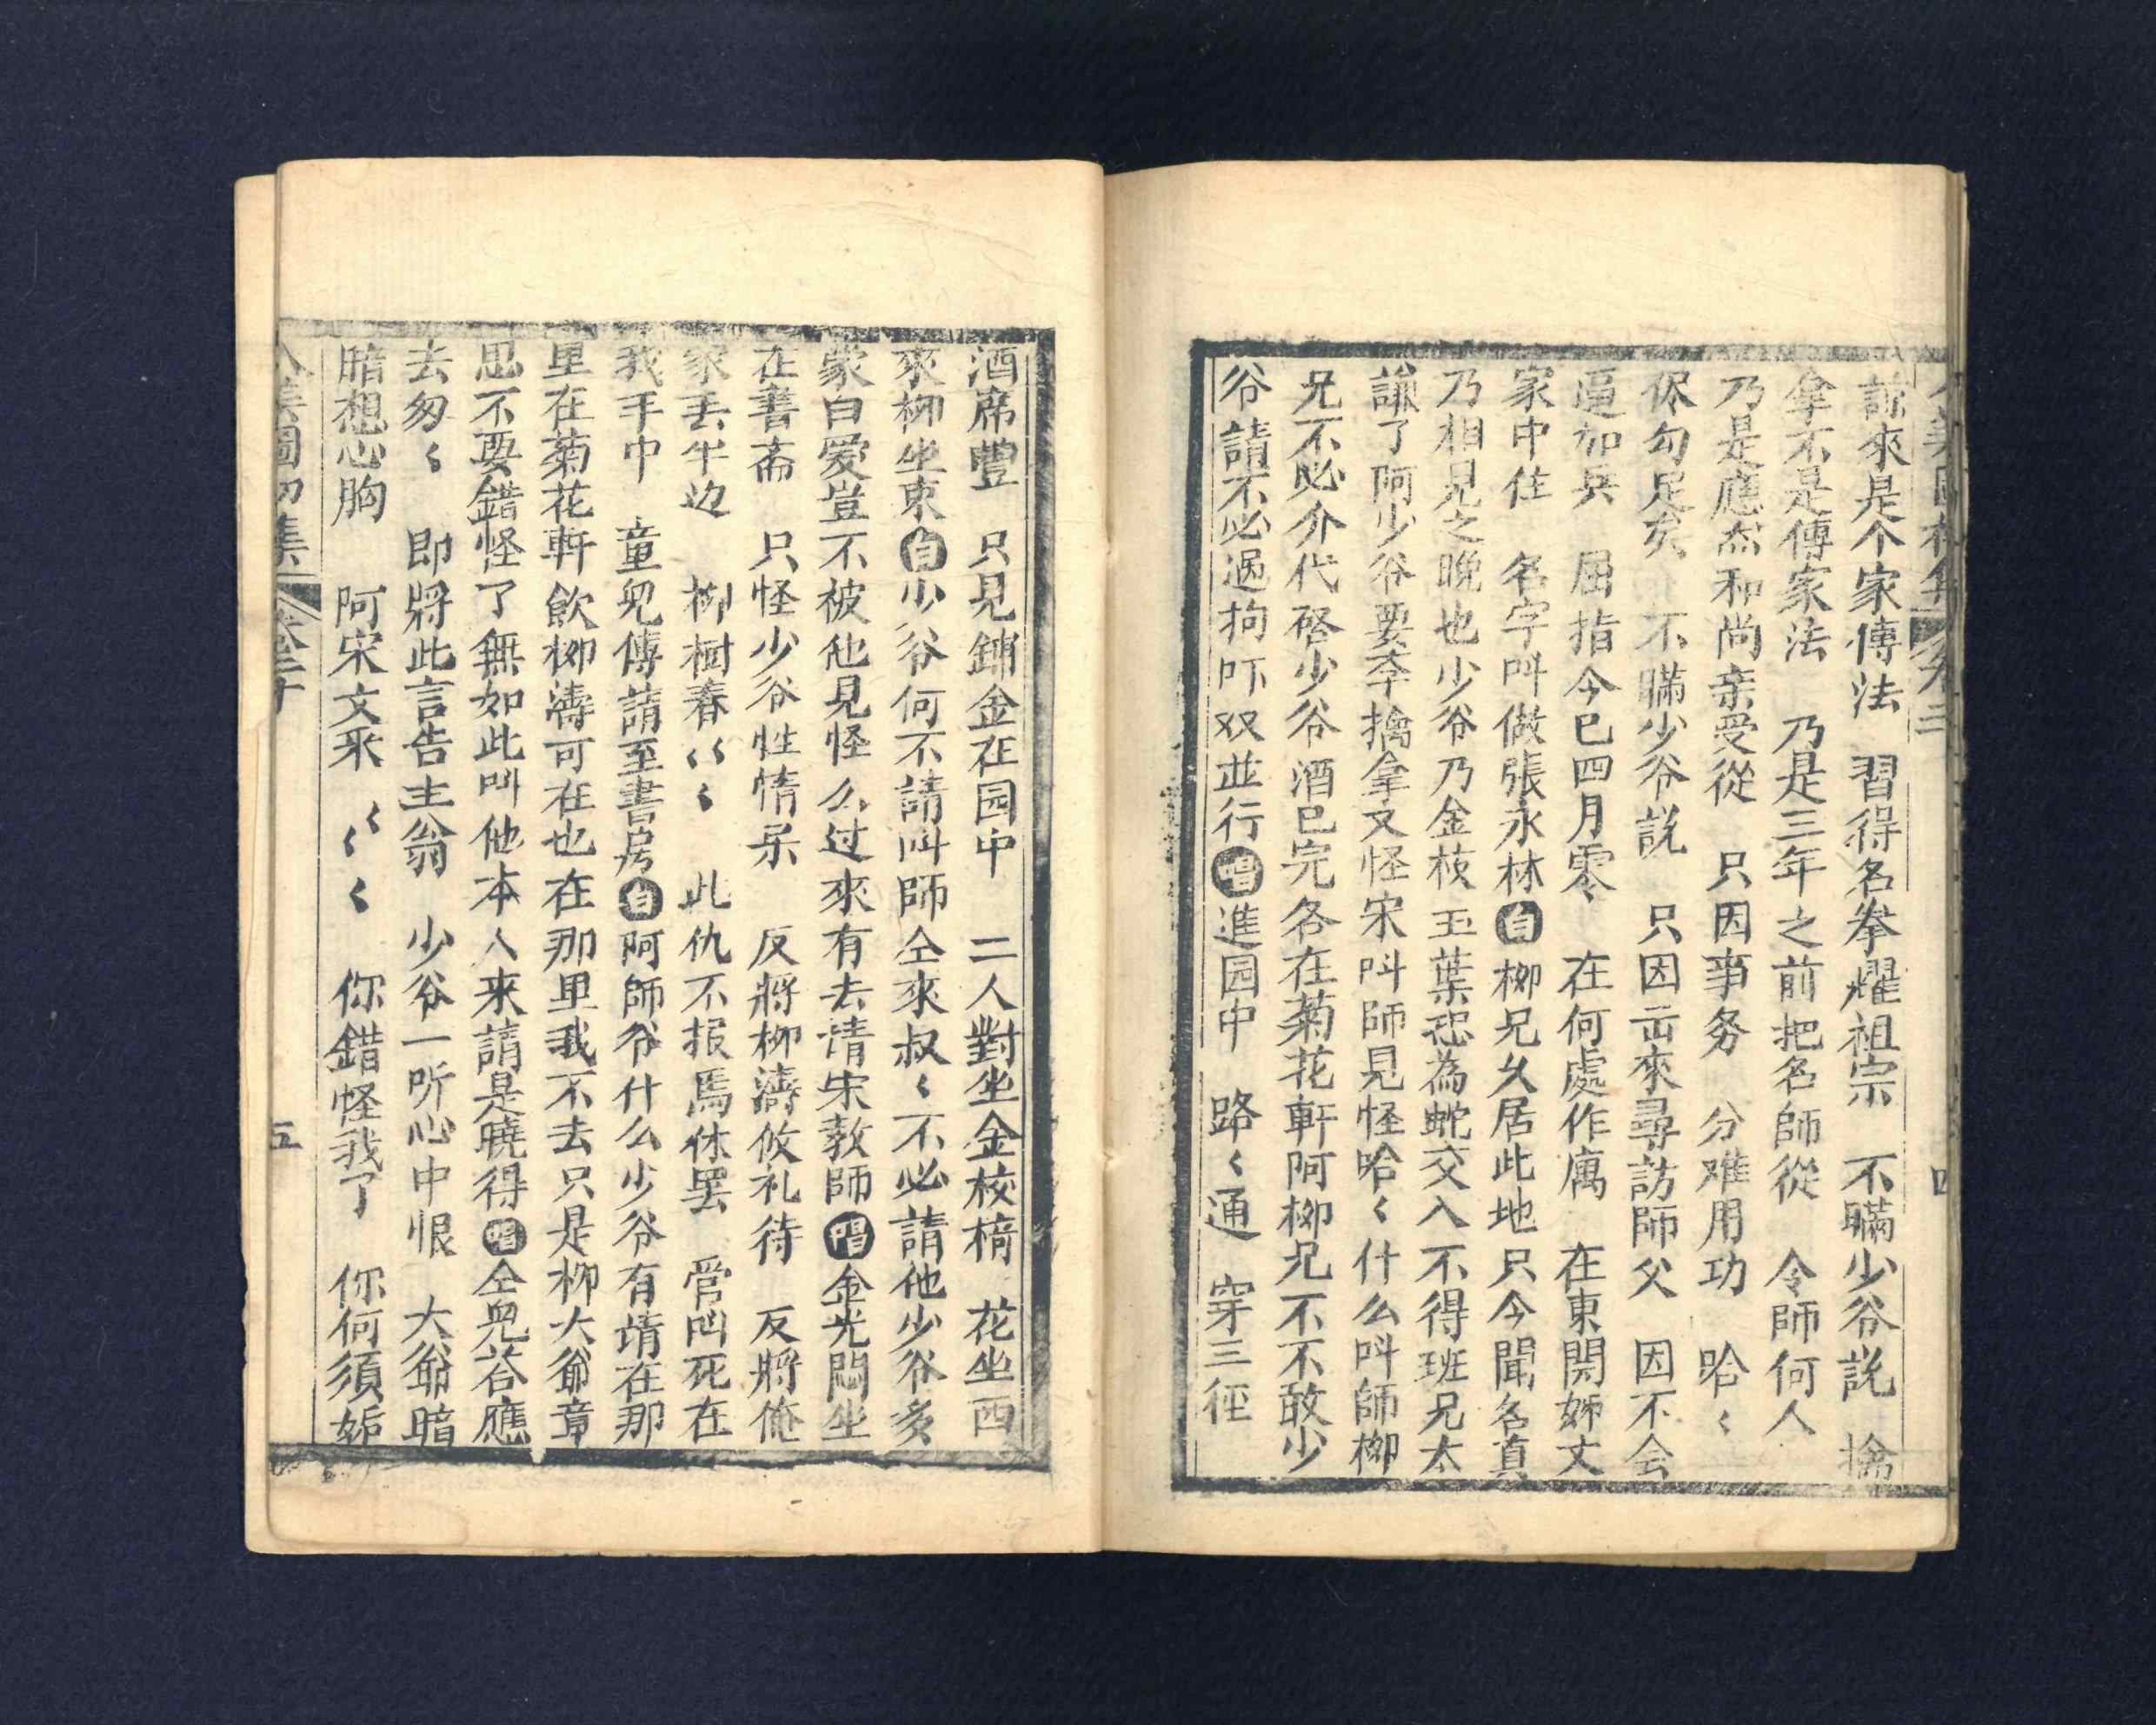 諒來是个家傳法 習得名拳耀祖宗 不瞞少爷説 擒
拿不是傳家法 乃是三年之前把名師從 令師何人
乃是應杰和尚亲受從 只因事务 分难用功 哈〻
你勾足矣 不瞞少爷説 只因出來尋訪師父 因不会
逼加兵 屈指今已四月零 在何處作寓 在東開姊丈
家中住 名字叫做張永林 白 柳兄久居此地只今聞名真
乃相見之晚也少爷乃金枝玉葉恐為蛇交入不得班兄太
謙了阿少爷要李擒拿又怪宋叫師見怪哈〻什么叫師柳
兄不必介代啓少爷酒已完各在菊花軒阿柳兄不不敢少
爷請不必過拘吓双並行 唱 進园中 路〻通 穿三徑
四
酒席豐 只見鋪金在园中 二人對坐金校椅 花坐西
來柳坐東 白 少爷何不請叫師仝來叔〻不必請他少爷多
蒙白爱豈不被他見怪么过來有去请宋教師 唱 金光悶坐
在書斋 只怪少爷性情呆 反將柳濤攸礼待 反將俺
家丢半边 柳樹春〻〻〻 此仇不报焉休罢 管叫死在
我手中 童兒傳請至書房 白 阿師爷什么少爷有请在那
里在菊花軒飲柳濤可在也在那里我不去只是柳大爺章
思不要錯怪了無如此叫他本人来請是曉得 唱 仝兒荅應
去匆〻 即將此言告主翁 少爷一听心中恨 大爺暗
暗想心胸 阿宋文采〻〻〻 你錯怪我了 你何須妬
八美圖初集 卷三十
五